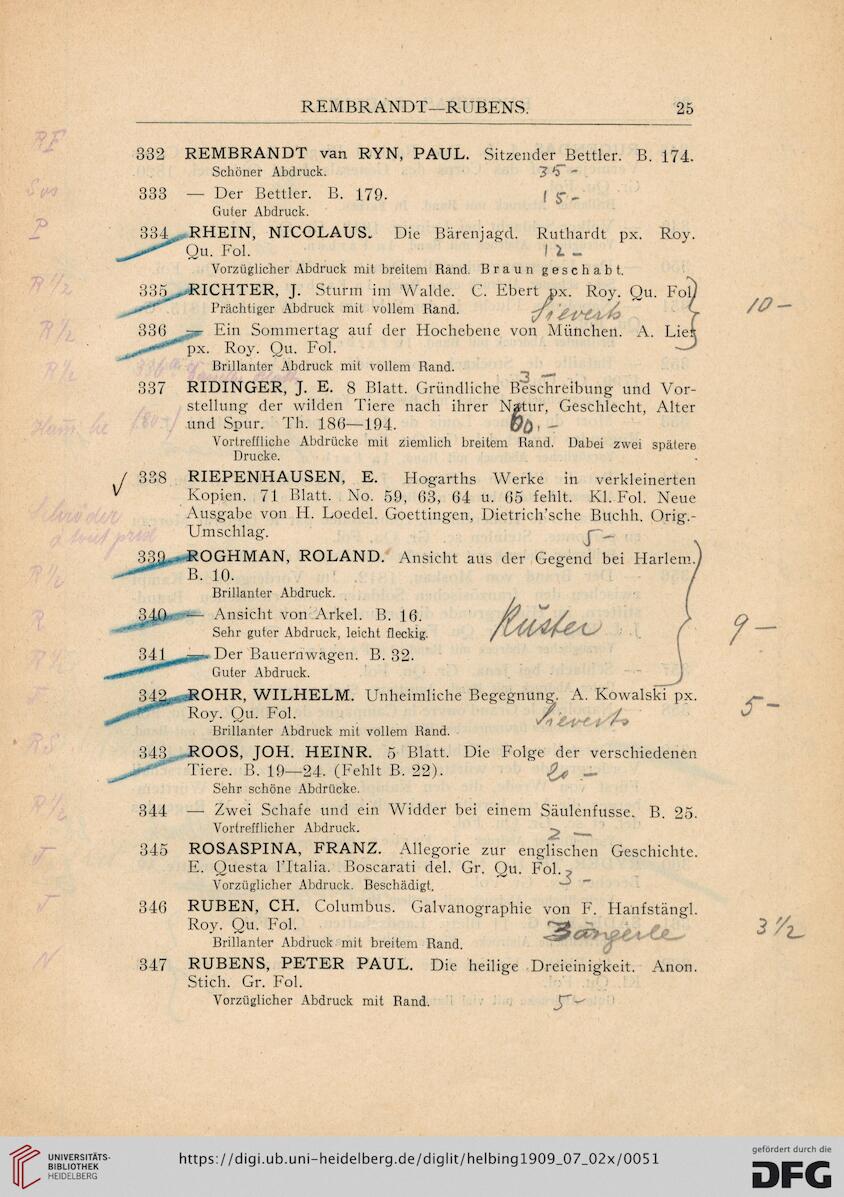 REMBRANDT—RUBENS. 25
332 REMBRANDT van RYN, PAUL. Sitzender Bettler. B. 174.
Schöner Abdruck. 35 -
333 — Der Bettler. B. 179. 15 -
Guter Abdruck.
334 RHEIN, NICOLAUS. Die Bärenjagd. Ruthardt px. Roy.
Qu. Fol. 12 -
Vorzüglicher Abdruck mit breitem Rand. Braun geschabt.
335 RICHTER, J. Sturm im Walde. C. Ebert px. Roy. Qu. Fol.
Prächtiger Abdruck mit vollem Rand. Sieverts 10 -
336 — Ein Sommertag auf der Hochebene von München. A. Lier
px. Roy. Qu. Fol.
Brillanter Abdruck mit vollem Rand.
3 -
337 RIDINGER, J. E. 8 Blatt. Gründliche Beschreibung und Vor-
stellung der wilden Tiere nach ihrer Natur, Geschlecht, Alter
und Spur. Th. 186—194. 60. -
Vortreffliche Abdrücke mit ziemlich breitem Rand. Dabei zwei spätere
Drucke.
338 RIEPENHAUSEN, E. Hogarths Werke in verkleinerten
Kopien. 71 Blatt. No. 59, 63, 64 u. 65 fehlt. Kl. Fol. Neue
Ausgabe von H. Loedel. Goettingen, Dietrich'sche Buchh. Orig.-
Umschlag. 5 -
339 ROGHMAN, ROLAND. Ansicht aus der Gegend bei Harlem.
B. 10.
Brillanter Abdruck.
340 — Ansicht von Arkel. B. 16.
Sehr guter Abdruck, leicht fleckig. Küster 9 -
341 — Der Bauernwagen. B. 32.
Guter Abdruck.
342 ROHR, WILHELM. Unheimliche Begegnung. A. Kowalski px.
Roy. Qu. Fol. Sieverts 5 -
Brillanter Abdruck mit vollem Rand.
343 ROOS, JOH. HEINR. 5 Blatt. Die Folge der verschiedenen
Tiere. B. 19—24. (Fehlt B. 22). 20 -
Sehr schöne Abdrücke.
344 — Zwei Schafe und ein Widder bei einem Säulenfusse. B. 25.
Vortrefflicher Abdruck. 2 -
345 ROSASPINA, FRANZ. Allegorie zur englischen Geschichte.
E. Questa l'Italia. Boscarati del. Gr. Qu. Fol.
Vorzüglicher Abdruck. Beschädigt. 3 -
346 RUBEN, CH. Columbus. Galvanographie von F. Hanfstängl.
Roy. Qu. Fol. Bängerle 3 1/2
Brillanter Abdruck mit breitem Rand.
347 RUBENS, PETER PAUL. Die heilige Dreieinigkeit. Anon.
Stich. Gr. Fol.
Vorzüglicher Abdruck mit Rand. 5 -
UNIVERSITÄTS-
BIBLIOTHEK
HEIDELBERG
https://digi.ub.uni-heidelberg.de/diglit/helbing1909_07_02x/0051
gefördert durch die
DFG